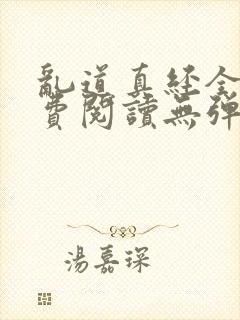 亂道真経全
費閱讀無彈
湯嘉琛